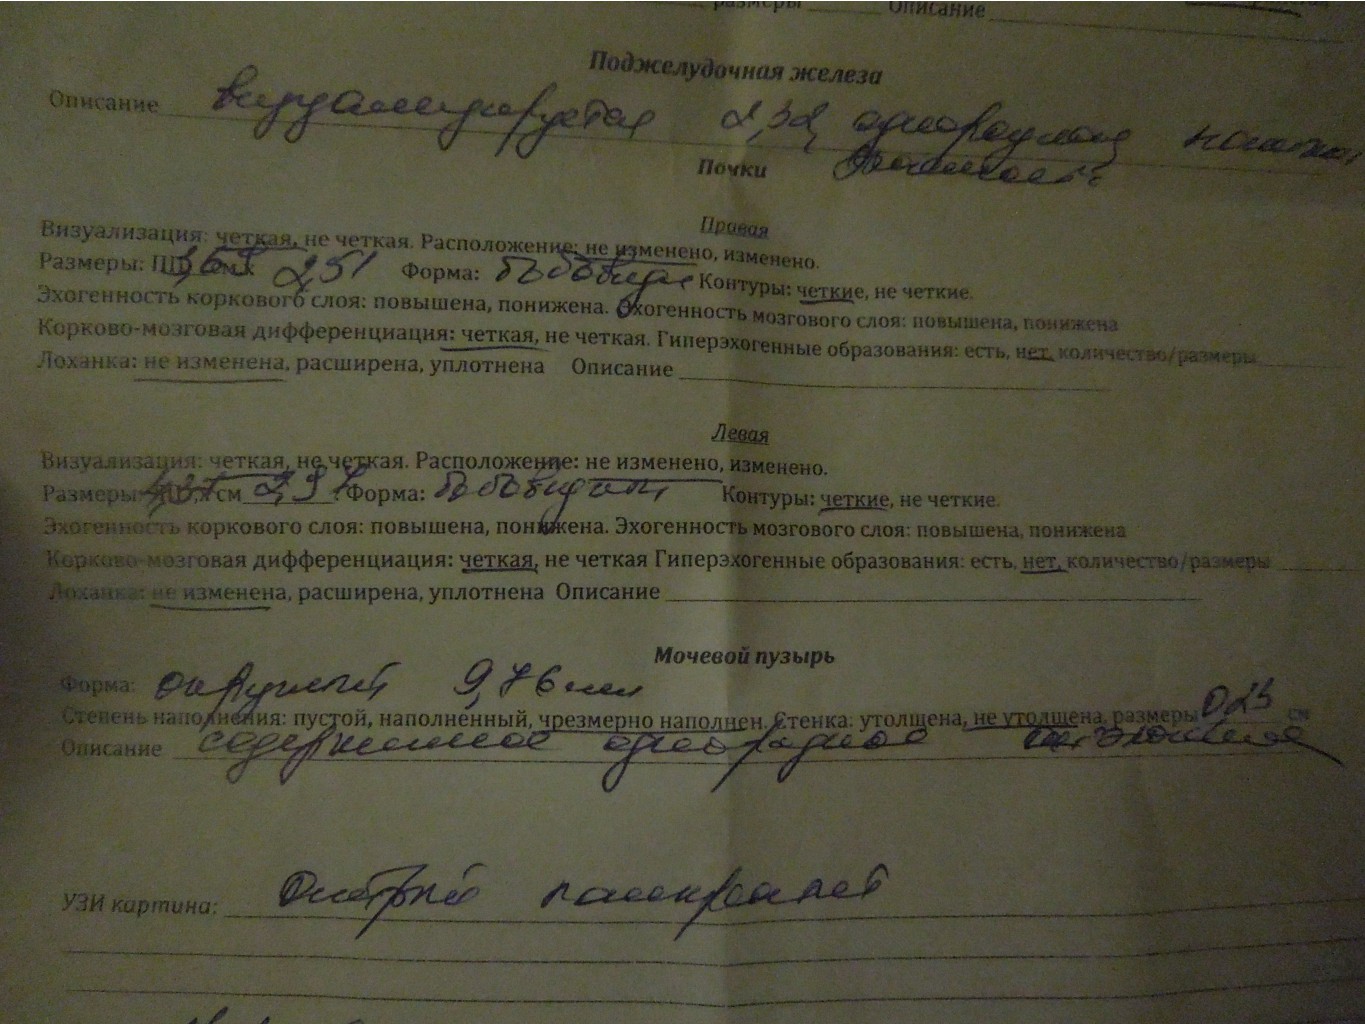 размеры Описание
Поджелудочная железа
Описание визуализируется 2,32 однородная
Почки
Правая
Визуализация: четкая, не четкая. Расположение: не изменено, изменено.
Размеры: 3,69 см х 2,51 Форма: бобовидн Контуры: четкие, не четкие.
Эхогенность коркового слоя: повышена, понижена. Эхогенность мозгового слоя: повышена, понижена
Корково-мозговая дифференциация: четкая, не четкая. Гиперэхогенные образования: есть, нет, количество/размеры
Лоханка: не изменена, расширена, уплотнена Описание
Левая
Визуализация: четкая, не четкая. Расположение: не изменено, изменено.
Размеры см 2,97 Форма: бобовидн Контуры: четкие, не четкие.
Эхогенность коркового слоя: повышена, понижена. Эхогенность мозгового слоя: повышена, понижена
Корково-мозговая дифференциация: четкая, не четкая Гиперэхогенные образования: есть, нет, количество/размеры
Лоханка: не изменена, расширена, уплотнена Описание
Мочевой пузырь
Форма: округлый 9,76 мл
Степень наполнения: пустой, наполненный, чрезмерно наполнен. Стенка: утолщена, не утолщена, размеры 0,23 см
Описание содержимое однородное анэхогенное
УЗИ картина: Острый панкреатит